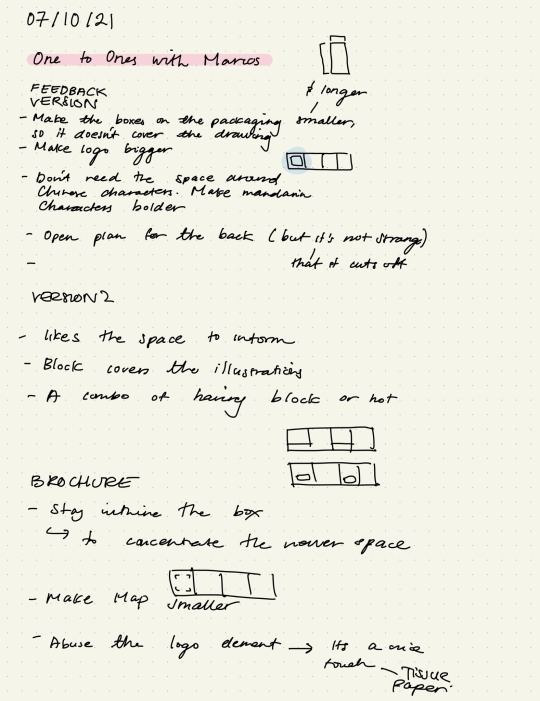 07/10/21
One to Ones with Marcos
FEEDBACK
VERSION
& longer
- Make the boxes on the packaging smaller,
so it doesn't cover the drawing
- Make logo bigger
- Don't need the space around
Chinese characters. Make mandarin
Characters bolder
- Open plan for the back (but it's not strange)
that it cuts off
-
VERSION 2
- likes the space to inform
- Block covers the illustrations
- A combo of having block or not
BROCHURE
- Stay the box
↳ to concentrate the space
- Make Map smaller
- Abuse the logo element → Its a nice
touch - Tissue
paper.